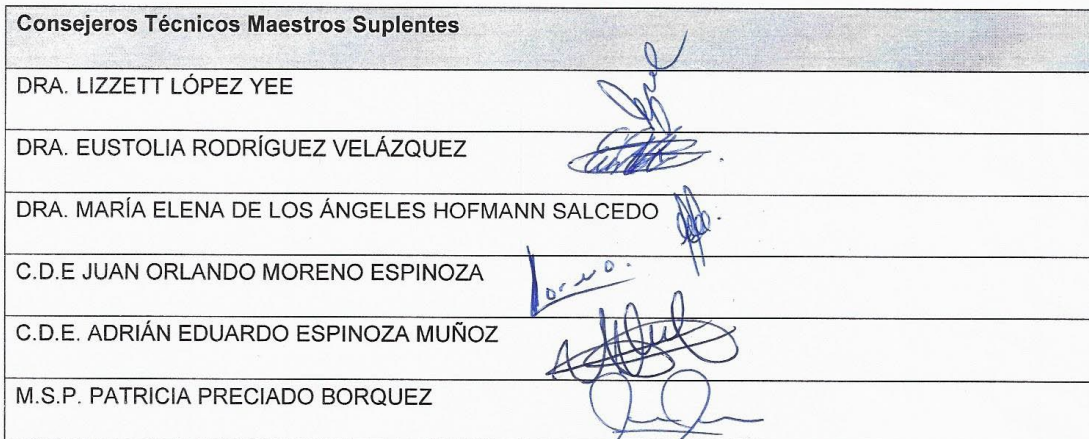 Consejeros Técnicos Maestros Suplentes
DRA. LIZZETT LÓPEZ YEE
DRA. EUSTOLIA RODRÍGUEZ VELÁZQUEZ
DRA. MARÍA ELENA DE LOS ÁNGELES HOFMANN SALCEDO
C.D.E JUAN ORLANDO MORENO ESPINOZA
C.D.E. ADRIÁN EDUARDO ESPINOZA MUÑOZ
M.S.P. PATRICIA PRECIADO BORQUEZ